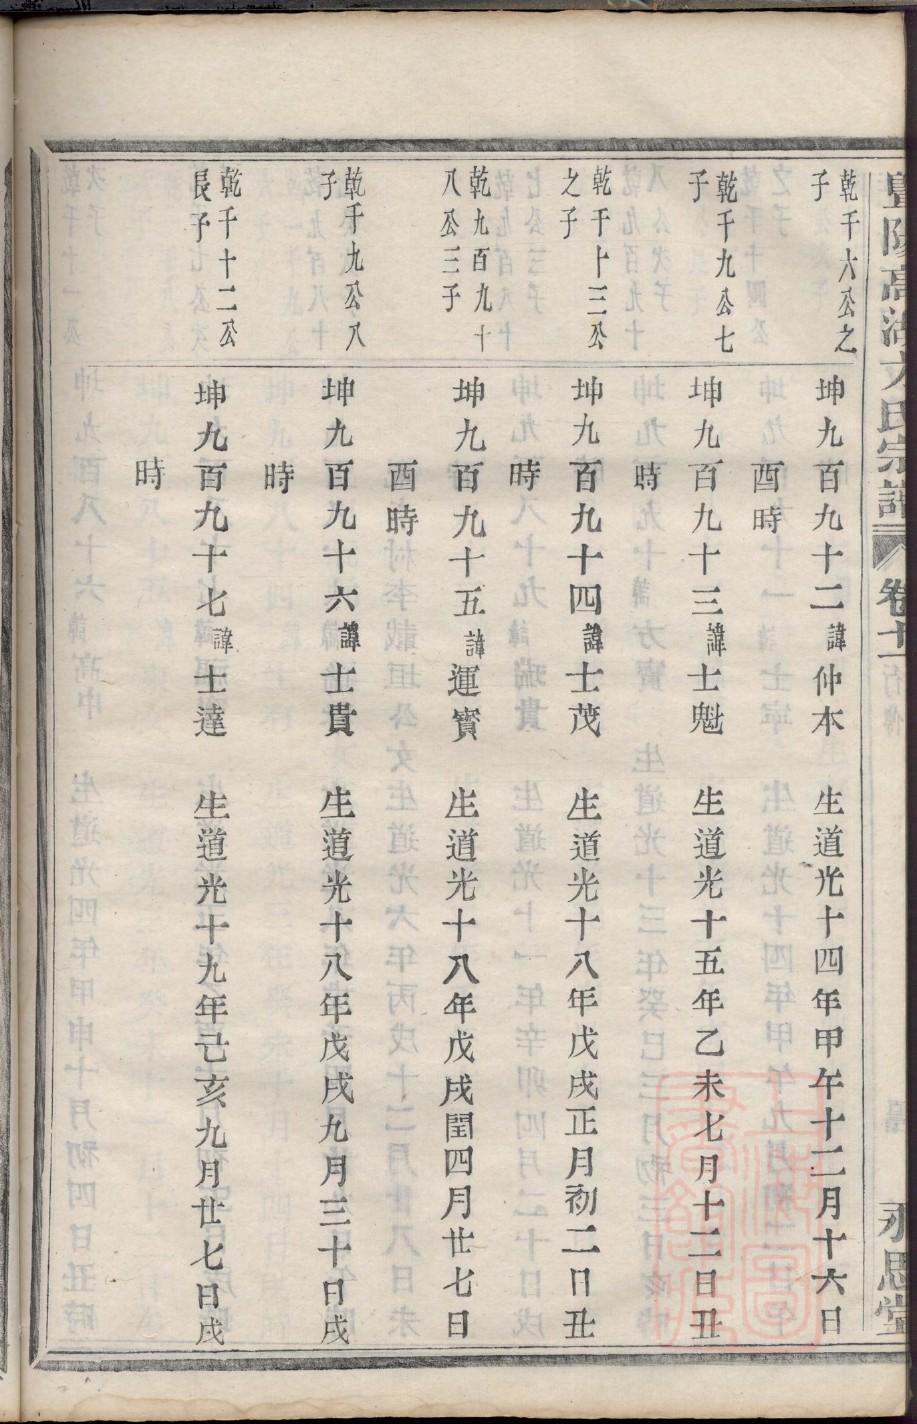 暨陽高湖方氏宗譜
卷十二
永思堂
乾千六公之
子
坤九百九十二諱仲本 生道光十四年甲午十二月十六日
酉時
乾千九公七
子
坤九百九十三諱士魁 生道光十五年乙未七月十二日丑
時
乾千十三公
之子
坤九百九十四諱士茂 生道光十八年戊戌正月初二日丑
時
乾九百九十
八公三子
坤九百九十五諱運寳 生道光十八年戊戌閏四月廿七日
酉時
乾千九公八
子
坤九百九十六諱士貴 生道光十八年戊戌九月三十日戌
時
乾千十二公
長子
坤九百九十七諱士達 生道光十九年己亥九月廿七日戌
時